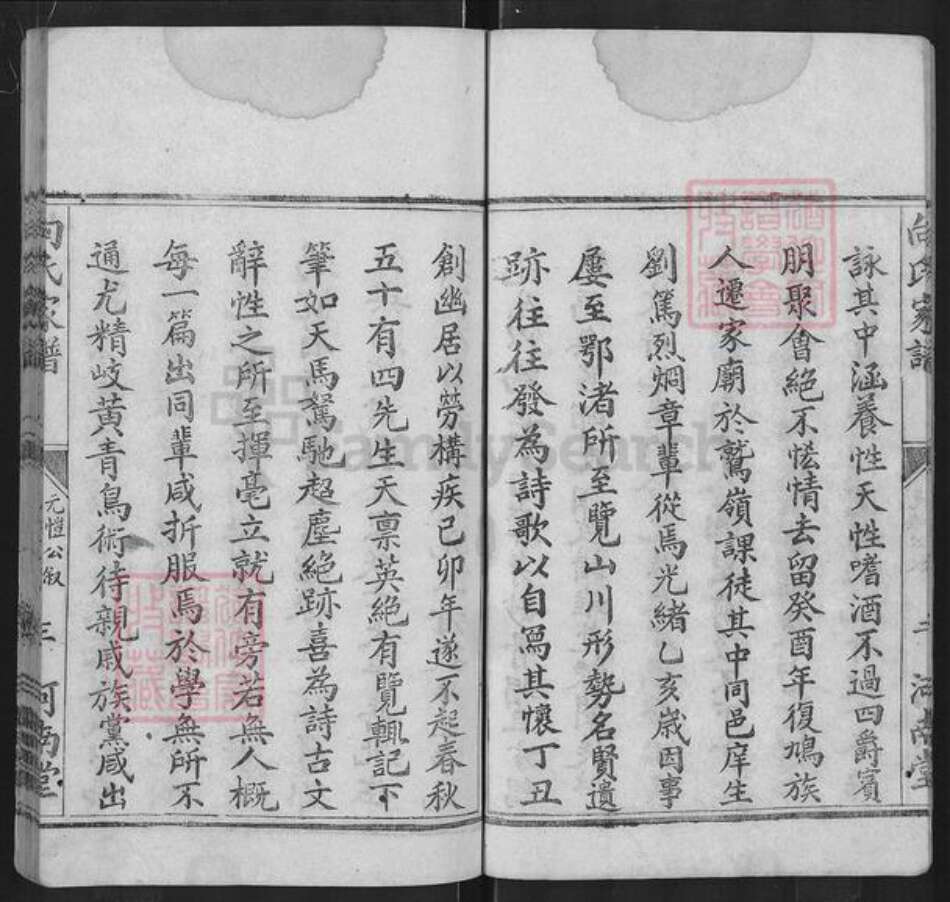 向氏家譜
二 河南堂
詠其中涵養性天性嗜酒不過四爵賓
朋聚會絕不恡情去留癸酉年復鳩族
人遷家廟於鷲嶺課徒其中同邑庠生
劉篤烈烱章輩從焉光緒乙亥歲因事
屢至鄂渚所至覽山川形勢名賢遺
跡往往發為詩歌以自寫其懷丁丑
創幽居以勞構疾己卯年遂不起春秋
五十有四先生天禀英絕有覽輒記下
筆如天馬駑馳超塵絕跡喜為詩古文
辭性之所至揮毫立就有旁若無人概
每一篇出同輩咸折服焉於學無所不
通尤精岐黃青鳥術待親戚族黨咸出
向氏家譜
元愷公叙
三 河南堂
FamilySearch